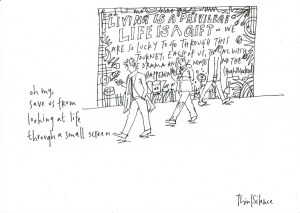 LIVING IS A PRIVILEGE
LIFE IS A GIFT - WE
ARE SO LUCKY TO GO THROUGH THIS
JOURNEY, EACH OF US, TO WITH
DRAMA AND THE
HAPPEN
oh my,
save us from
looking at life
through a small screen